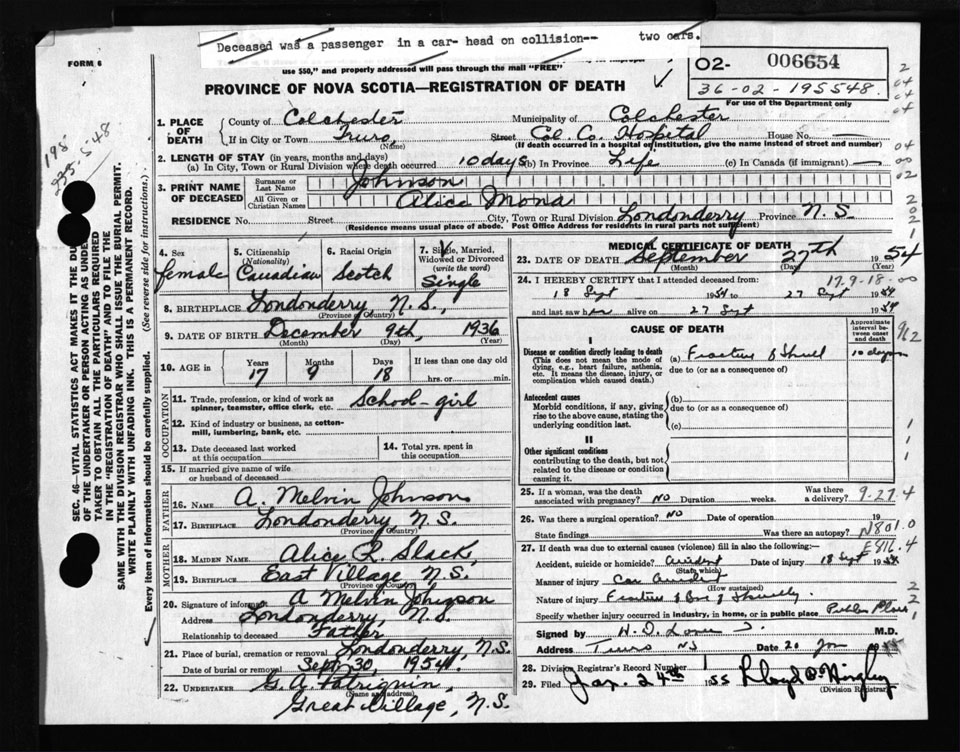 Deceased was a passenger in a car- head on collision-- two cars.
FORM 6
use $50," and properly addressed will pass through the mail "FREE"
02- 006654
36-02-195548
For use of the Department only
PROVINCE OF NOVA SCOTIA—REGISTRATION OF DEATH
1. PLACE OF DEATH County of Colchester Municipality of Colchester
If in City or Town Truro (Name) Street Col. Co. Hospital House No. —
(If death occurred in a hospital or institution, give the name instead of street and number)
2. LENGTH OF STAY (in years, months and days)
(a) In City, Town or Rural Division where death occurred 10 days (b) In Province Life (c) In Canada (if immigrant) —
3. PRINT NAME OF DECEASED Surname or Last Name Johnson
All Given or Christian Names Alice Mona
RESIDENCE No. Street City, Town or Rural Division Londonderry Province N.S.
(Residence means usual place of abode. Post Office Address for residents in rural parts not sufficient)
4. Sex female
5. Citizenship (Nationality) Canadian
6. Racial Origin Scotch
7. Single, Married, Widowed or Divorced (write the word) Single
8. BIRTHPLACE Londonderry N.S.,
(Province or Country)
9. DATE OF BIRTH December 9th, 1936
(Month) (Day) (Year)
10. AGE in Years 17 Months 9 Days 18 If less than one day old hrs. or min.
OCCUPATION
11. Trade, profession, or kind of work as spinner, teamster, office clerk, etc. School-girl
12. Kind of industry or business, as cotton-mill, lumbering, bank, etc.
13. Date deceased last worked at this occupation
14. Total yrs. spent in this occupation
15. If married give name of wife or husband of deceased
FATHER
16. NAME A. Melvin Johnson
17. BIRTHPLACE Londonderry N.S.
(Province or Country)
MOTHER
18. MAIDEN NAME Alice R. Slack,
19. BIRTHPLACE East Village, N.S.
(Province or Country)
20. Signature of informant A Melvin Johnson
Address Londonderry, N.S.
Relationship to deceased Father
21. Place of burial, cremation or removal Londonderry, N.S.
Date of burial or removal Sept 30, 1954.
22. UNDERTAKER G. A. Patriquin,
(Name and address)
Great Village, N.S.
MEDICAL CERTIFICATE OF DEATH
23. DATE OF DEATH September 27th 1954
(Month) (Day) (Year)
17-9-18-00
24. I HEREBY CERTIFY that I attended deceased from:
18 Sept 1954 to 27 Sept 1954
and last saw her alive on 27 Sept 1954
CAUSE OF DEATH
Approximate interval between onset and death
I
Disease or condition directly leading to death (a) Fracture of Skull 10 days
(This does not mean the mode of dying, e.g., heart failure, asthenia, etc. It means the disease, injury, or complication which caused death.)
due to (or as a consequence of)
Antecedent causes
Morbid conditions, if any, giving rise to the above cause, stating the underlying condition last.
(b)
due to (or as a consequence of)
(c)
II
Other significant conditions
contributing to the death, but not related to the disease or condition causing it.
25. If a woman, was the death associated with pregnancy? NO Duration weeks. Was there a delivery?
9-27-4
26. Was there a surgical operation? NO Date of operation 19
State findings Was there an autopsy?
N801.0
E816.4
27. If death was due to external causes (violence) fill in also the following:—
Accident, suicide or homicide? Accident Date of injury 18 Sept 1954
(State which)
Manner of injury Car Accident
(How sustained)
Nature of injury
Specify whether injury occurred in industry, in home, or in public place Public Place
Signed by M.D.
Address Truro NS Date 20 Jan
28. Division Registrar's Record Number
29. Filed Jan. 24th 1955 Lloyd
(Division Registrar)
SEC. 46—VITAL STATISTICS ACT MAKES IT THE DU
OF THE UNDERTAKER OR PERSON ACTING AS UNDE
TAKER TO OBTAIN ALL THE PARTICULARS REQUIRED
IN THE "REGISTRATION OF DEATH" AND TO FILE THE
SAME WITH THE DIVISION REGISTRAR WHO SHALL ISSUE THE BURIAL PERMIT.
WRITE PLAINLY WITH UNFADING INK. THIS IS A PERMANENT RECORD.
Every item of information should be carefully supplied. (See reverse side for instructions.)